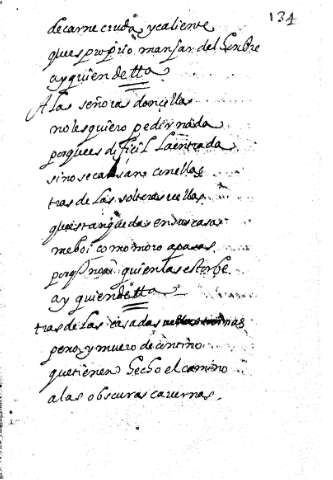 134
de carne cruda y caliente
que es propriô manjar del hombre
ay quien de tta
A las señoras donçellas
no les quiero pedir nada
porque es dificil la entrada
si no se casan con ellas
tras de las solteras bellas
que estan quedas en sus casas
me boi como moro a pasas
porq̃ no ay quien las estorbe
ay quien de tta
tras de las casadas
peno y muero de contino
que tienen hecho el camino
a las obscuras cavernas.